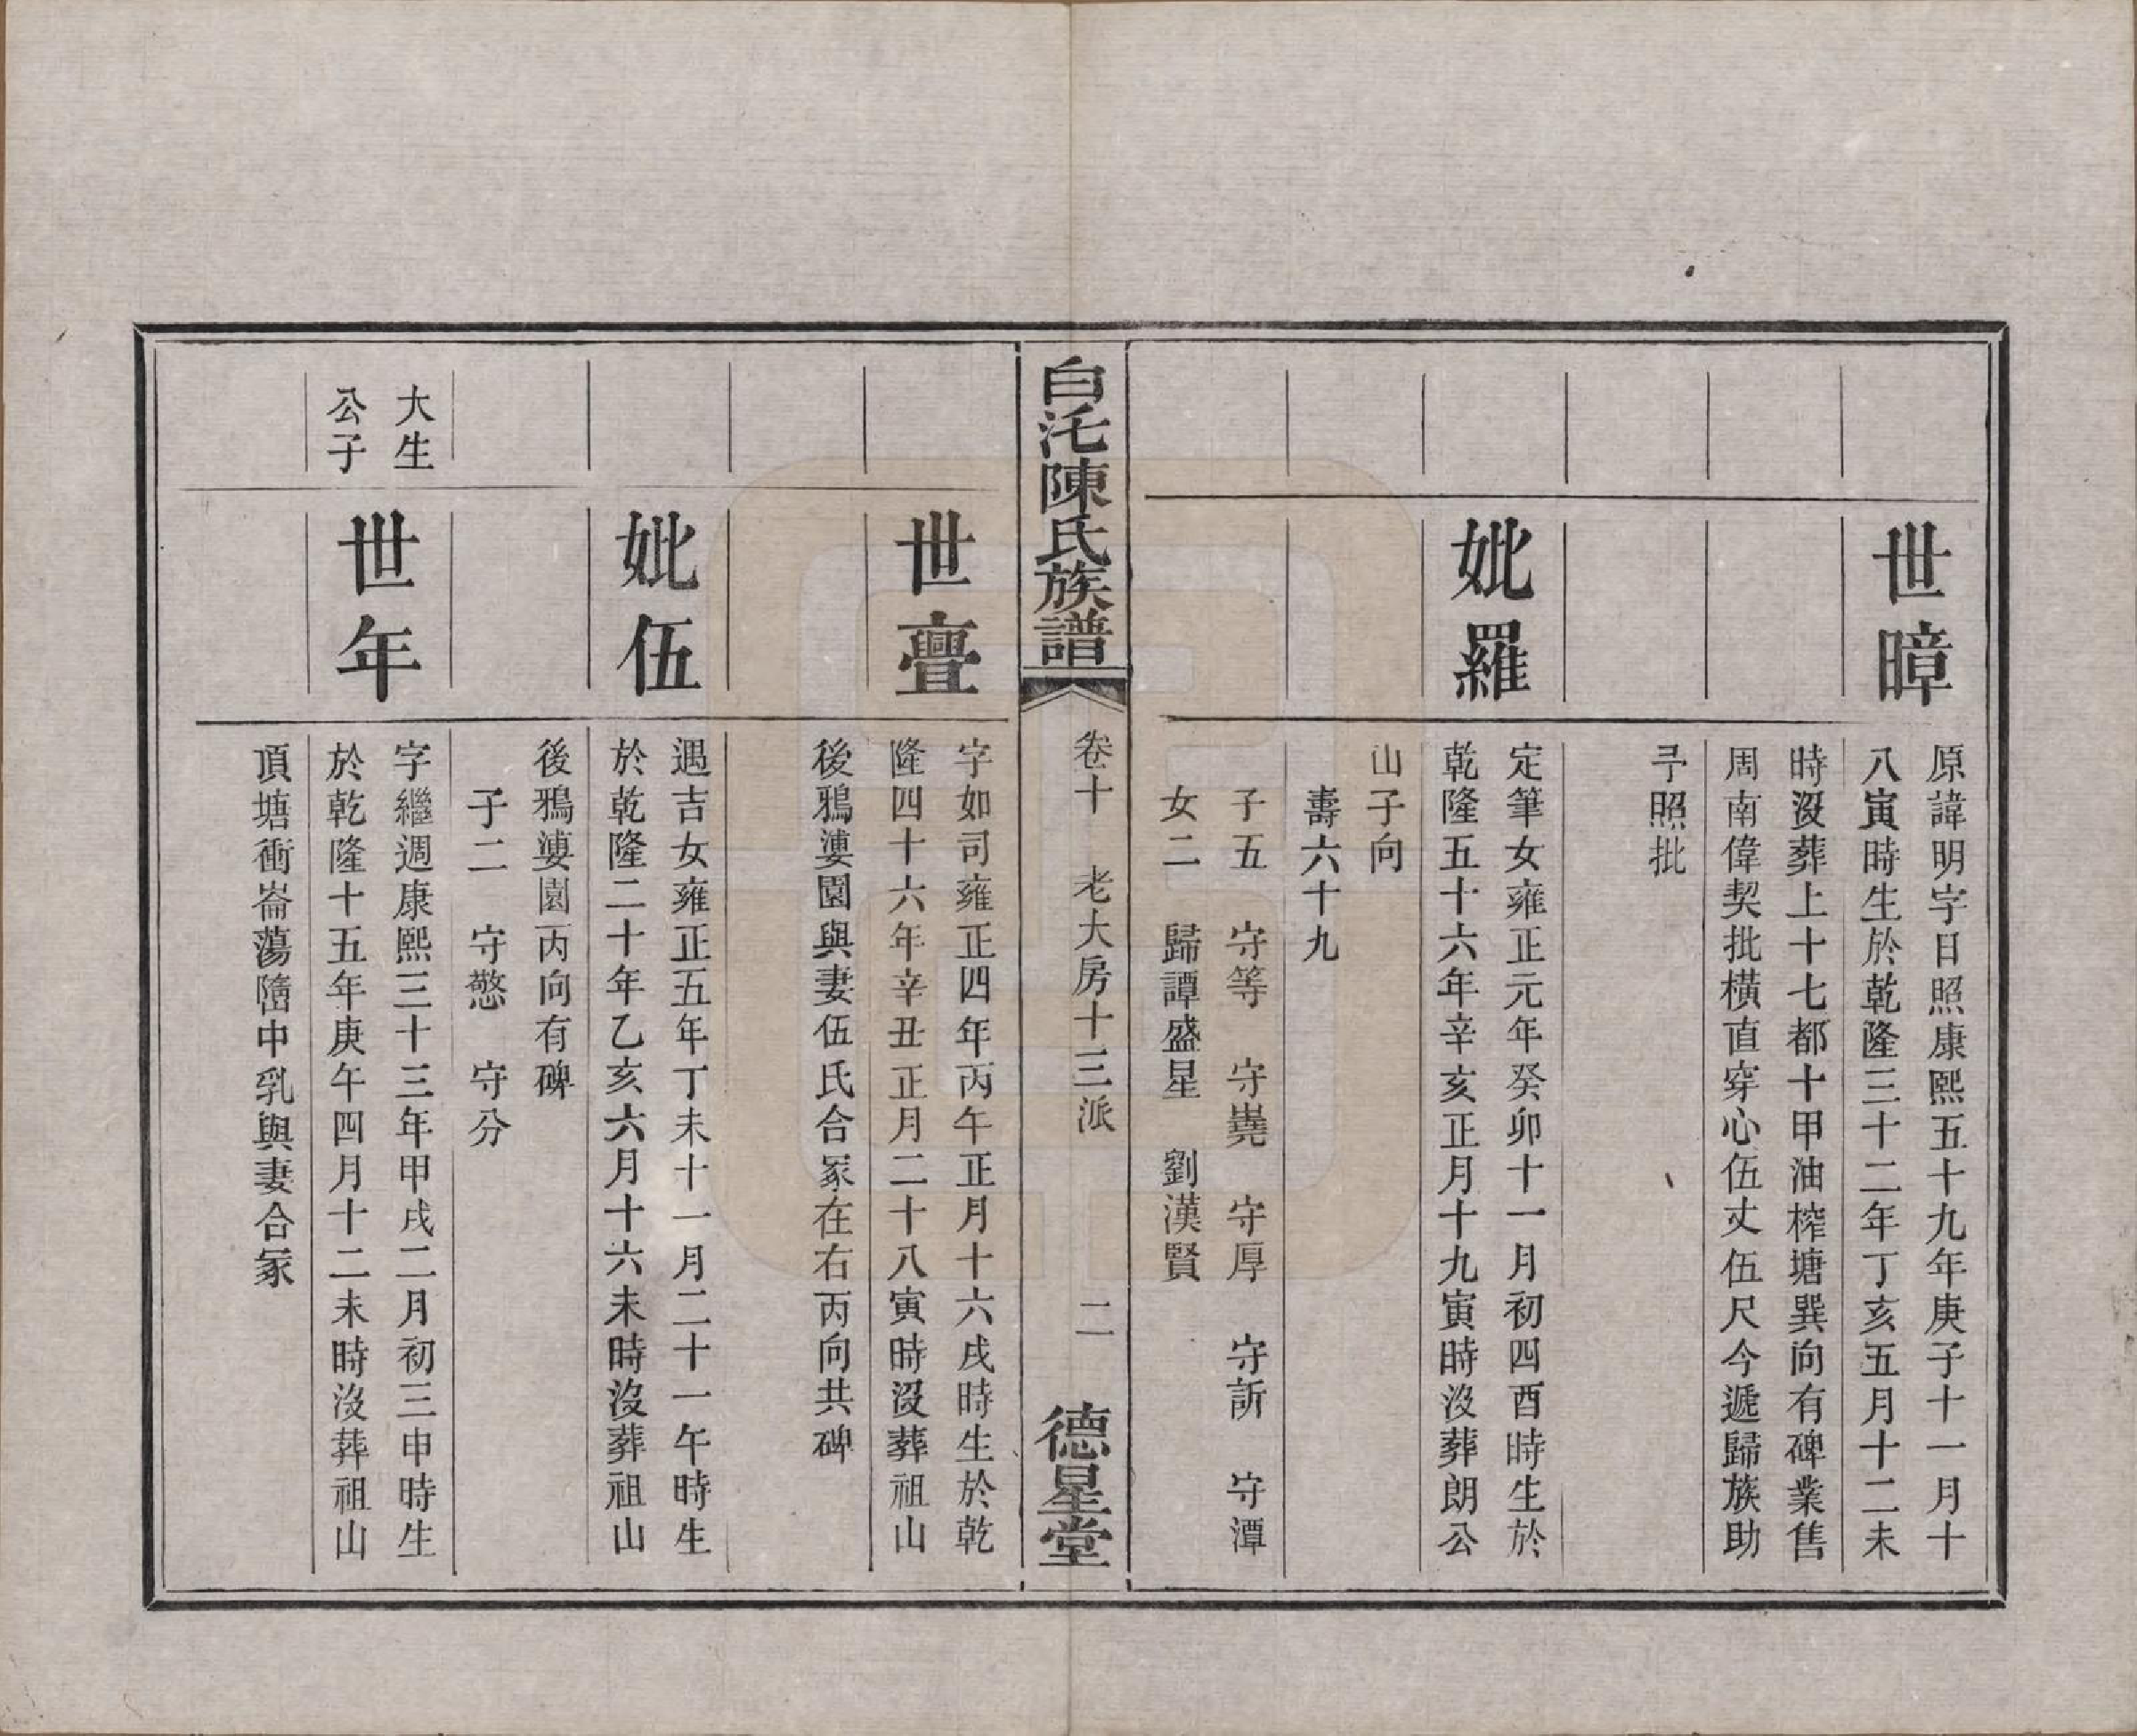 世暲
原諱明字日照康熙五十九年庚子十一月十
八寅時生於乾隆三十二年丁亥五月十二未
時沒葬上十七都十甲油榨塘巽向有碑業售
周南偉契批橫直穿心伍丈伍尺今遞歸族助
予照批
妣羅
定筆女雍正元年癸卯十一月初四酉時生於
乾隆五十六年辛亥正月十九寅時沒葬朗公
山子向
壽六十九
子五 守等 守嶤 守厚 守訢 守潭
女二 歸譚盛星 劉漢賢
白沱陳氏族譜
卷十 老大房十三派 二
德星堂
世亹
字如司雍正四年丙午正月十六戌時生於乾
隆四十六年辛丑正月二十八寅時沒葬祖山
後鴉漊園與妻伍氏合冢在右丙向共碑
妣伍
遇吉女雍正五年丁未十一月二十一午時生
於乾隆二十年乙亥六月十六未時沒葬祖山
後鴉漊園丙向有碑
子二 守憗 守分
大生
公子
世年
字繼週康熙三十三年甲戌二月初三申時生
於乾隆十五年庚午四月十二未時沒葬祖山
頂塘衝崙蕩隋中乳與妻合冢